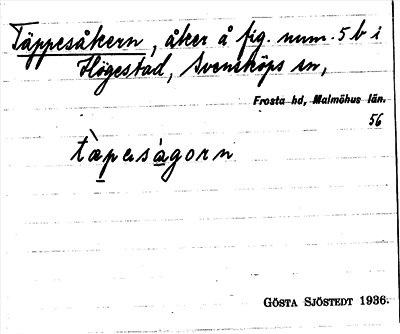 Täppesåkern, åker å fig. num. 5 b i
Högestad, Svensköps sn,
Frosta hd, Malmöhus län.
56
tæ̀pesågorn
GÖSTA SJÖSTEDT 1936.